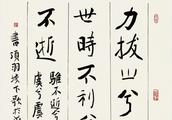 力拔山兮
世時不利
不逝
騅不逝兮
虞兮虞
書項羽垓下歌